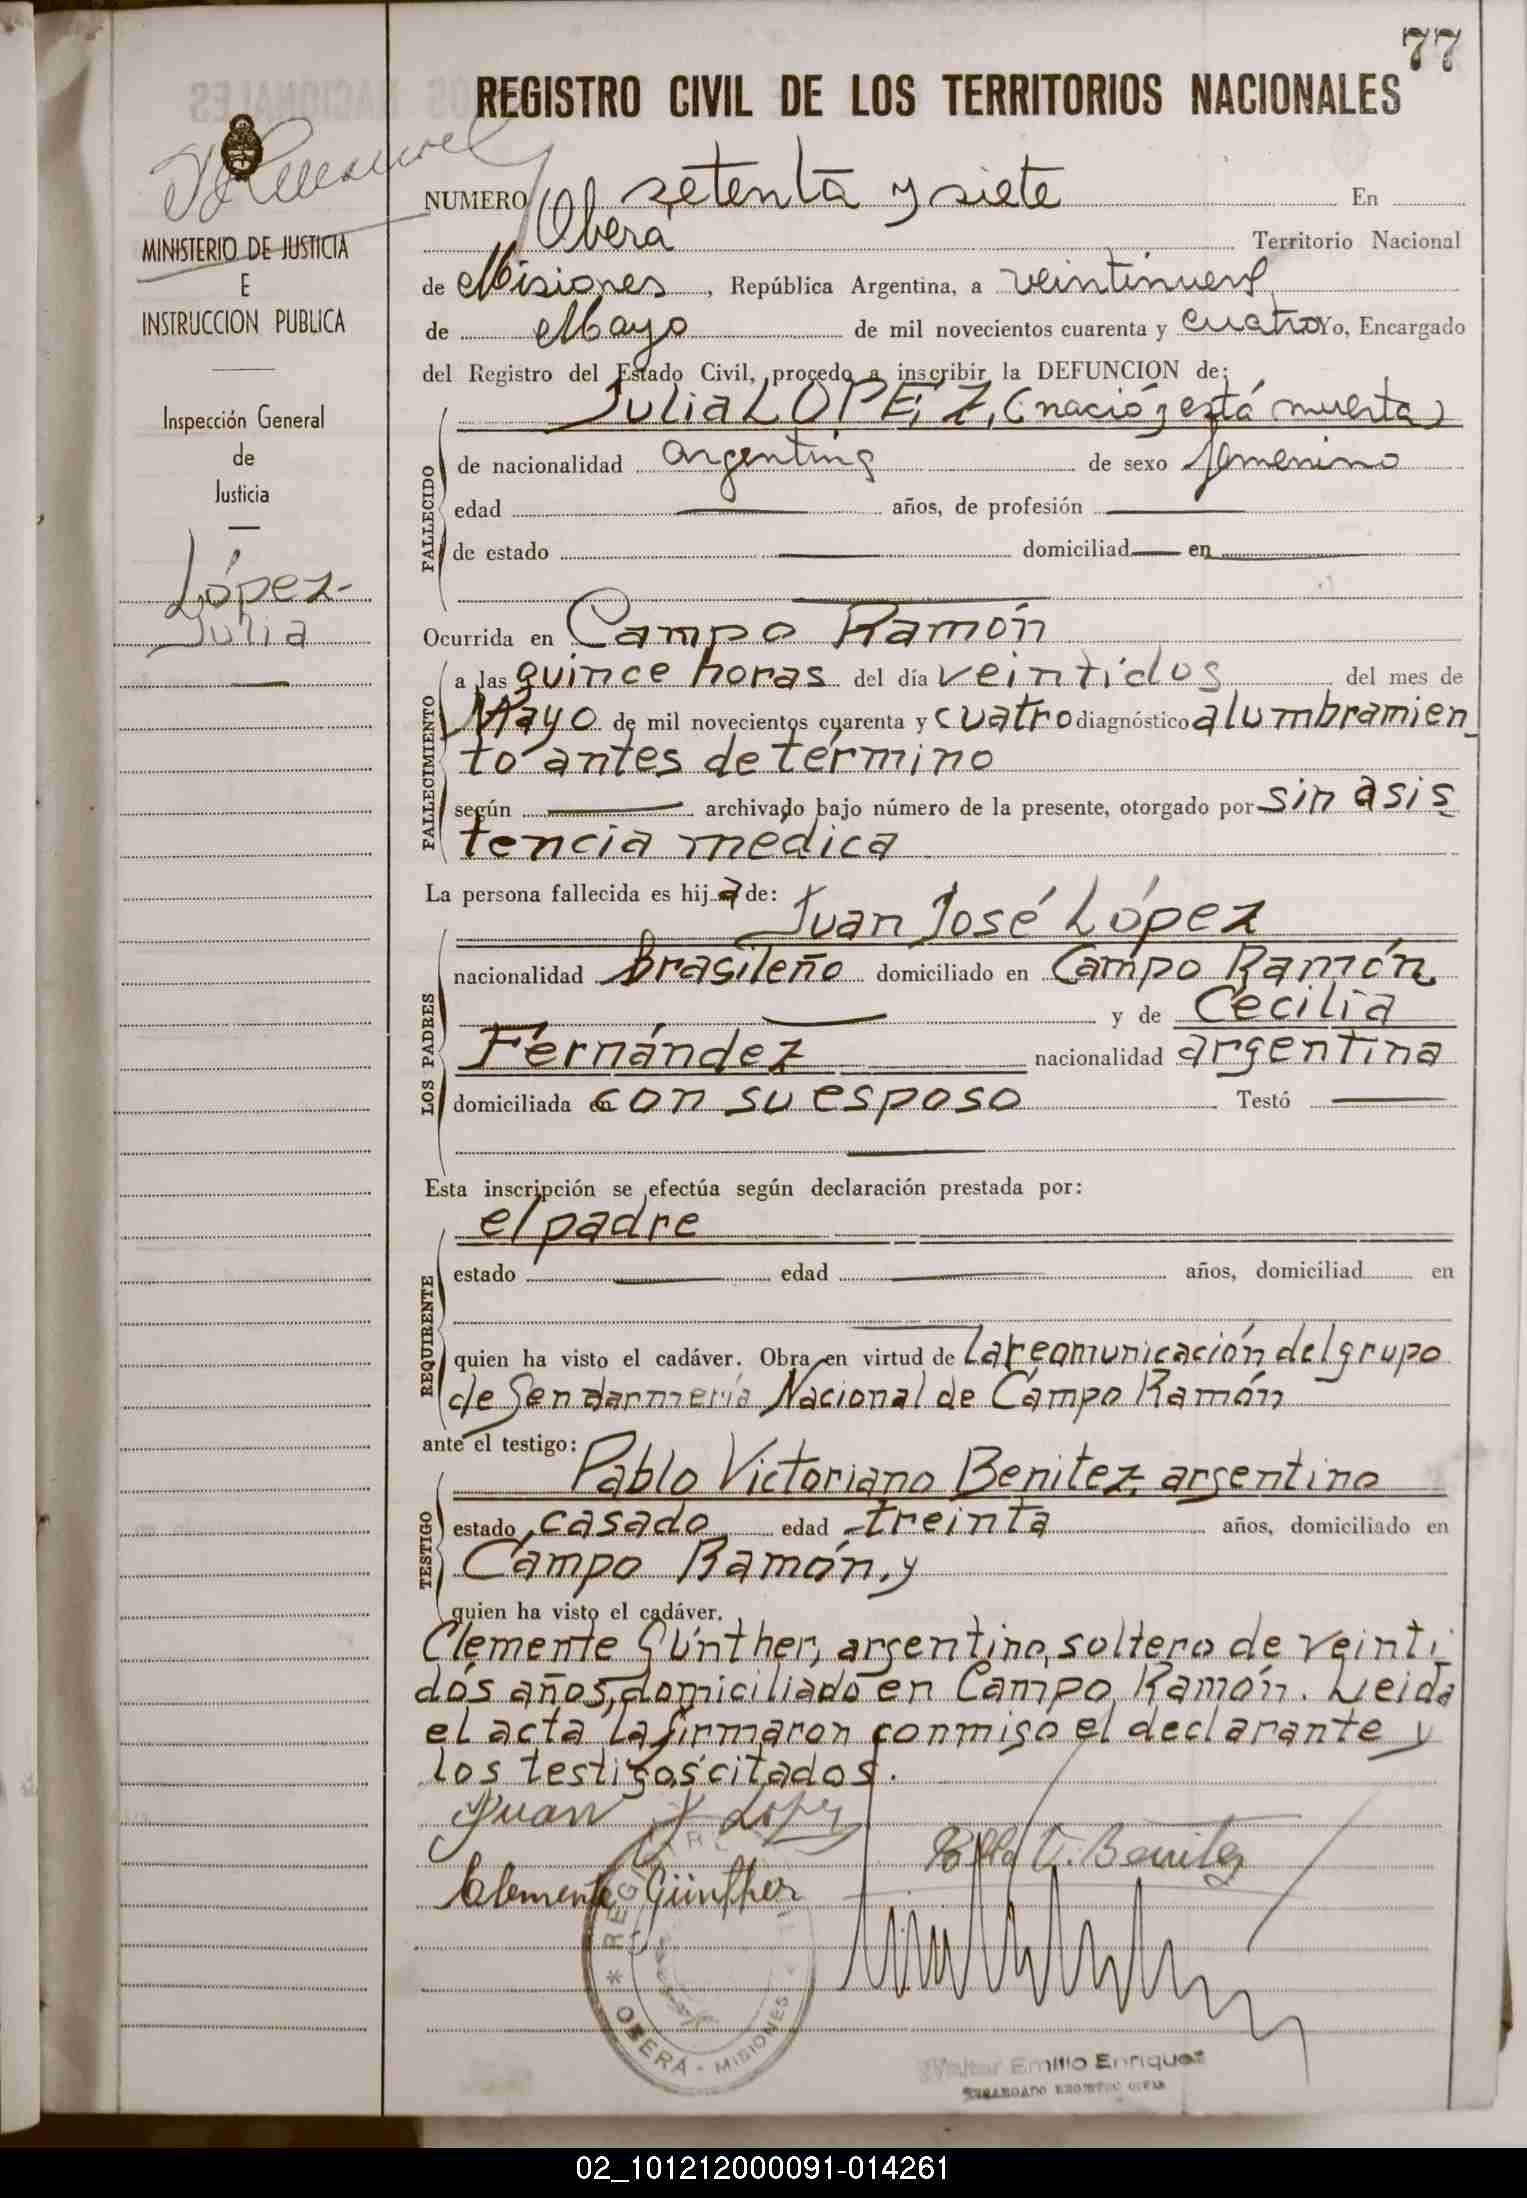 77
REGISTRO CIVIL DE LOS TERRITORIOS NACIONALES
MINISTERIO DE JUSTICIA
E
INSTRUCCION PUBLICA
Inspección General
de
Justicia
López-
Julia
NUMERO setenta y siete En
Oberá Territorio Nacional
de Misiones, República Argentina, a veintinueve
de Mayo de mil novecientos cuarenta y cuatro Yo, Encargado
del Registro del Estado Civil, procedo a inscribir la DEFUNCION de:
Julia LOPEZ, (nació y está muerta)
FALLECIDO
de nacionalidad argentina de sexo femenino
edad años, de profesión
de estado domiciliad en
Ocurrida en Campo Ramón
FALLECIMIENTO
a las quince horas del día veintidos del mes de
Mayo de mil novecientos cuarenta y cuatro diagnóstico alumbramien
to antes de término
según archivado bajo número de la presente, otorgado por sin asis
tencia médica
La persona fallecida es hija de:
Juan José López
LOS PADRES
nacionalidad brasileño domiciliado en Campo Ramón
y de Cecilia
Fernández nacionalidad argentina
domiciliada en con su esposo Testó
Esta inscripción se efectúa según declaración prestada por:
el padre
REQUIRENTE
estado edad años, domiciliad en
quien ha visto el cadáver. Obra en virtud de la comunicación del grupo
de Gendarmería Nacional de Campo Ramón
ante el testigo:
Pablo Victoriano Benitez, argentino
TESTIGO
estado casado edad treinta años, domiciliado en
Campo Ramón, y
quien ha visto el cadáver.
Clemente Günther, argentino, soltero de veinti
dós años, domiciliado en Campo Ramón. Leida
el acta la firmaron conmigo el declarante y
los testigos citados.
Juan J López
Pablo V. Benitez
Clemente Günther
REGISTRO CIVIL * OBERÁ - MISIONES
Emilio Enriquez
ENCARGADO REGISTRO CIVIL
02_101212000091-014261